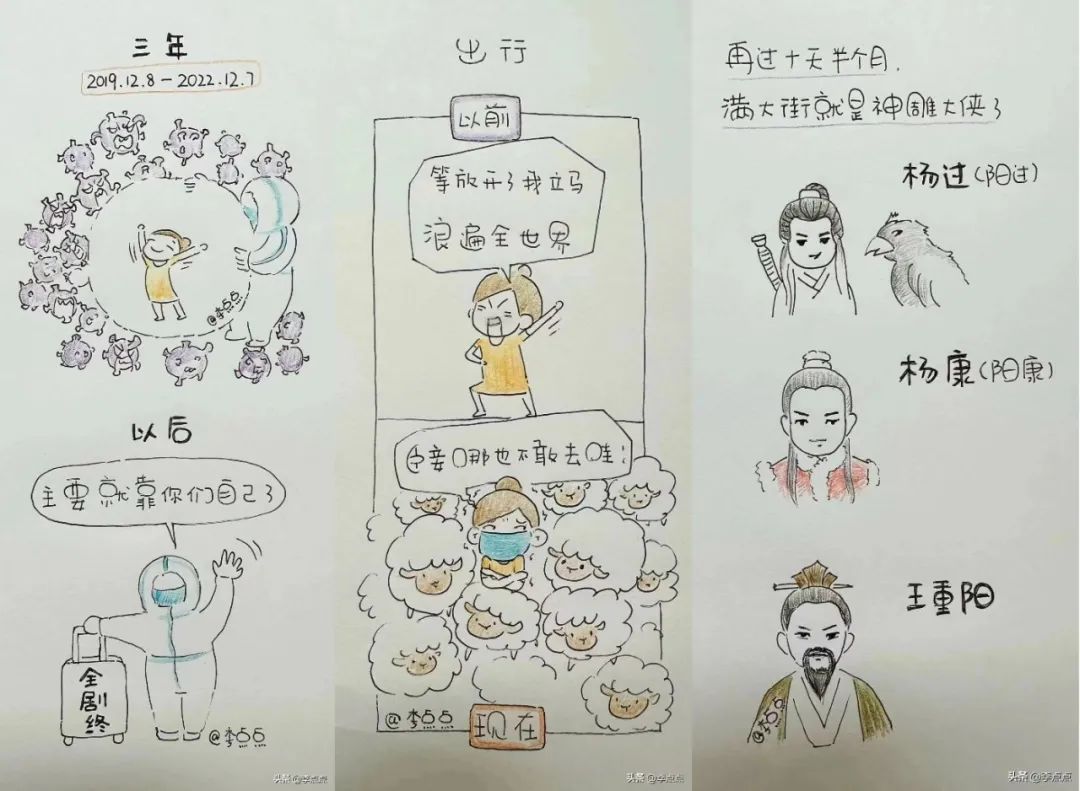 三年
2019.12.8-2022.12.7
@李点点
以后
主要就靠你们自己了
全
剧
终
@李点点
头条 @李点点
出行
以前
等放开了我立马
浪遍全世界
接哪也不敢去哇!
@李点点
现在
头条 @李点点
再过十天半个月.
满大街就是神雕大侠了
杨过(阳过)
杨康(阳康)
王重阳
@李点点
头条 @李点点